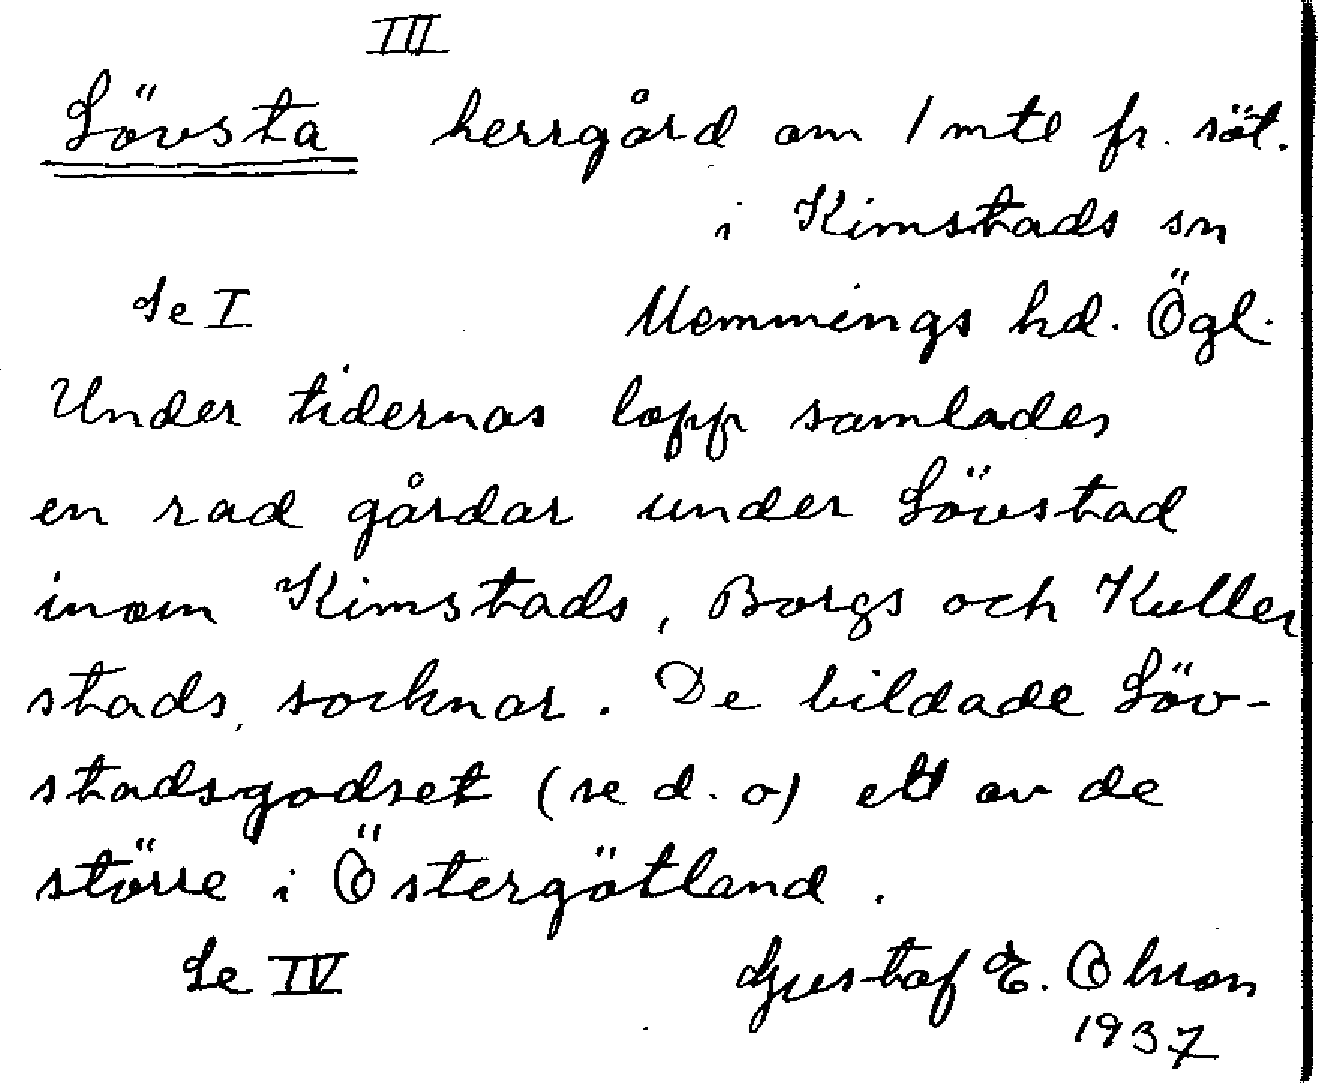 III
Lövsta herrgård om 1 mtl fr. sät.
i Kimstads sn
Se I Memmings hd. Ögl.
Under tidernas lopp samlades
en rad gårdar under Lövstad
inom Kimstads, Borgs och Kuller
stads, socknar. De bildade Löv-
stadsgodset (se d. o) ett av de
större i Östergötland.
Se IV Gustaf E. Ohlson
1937